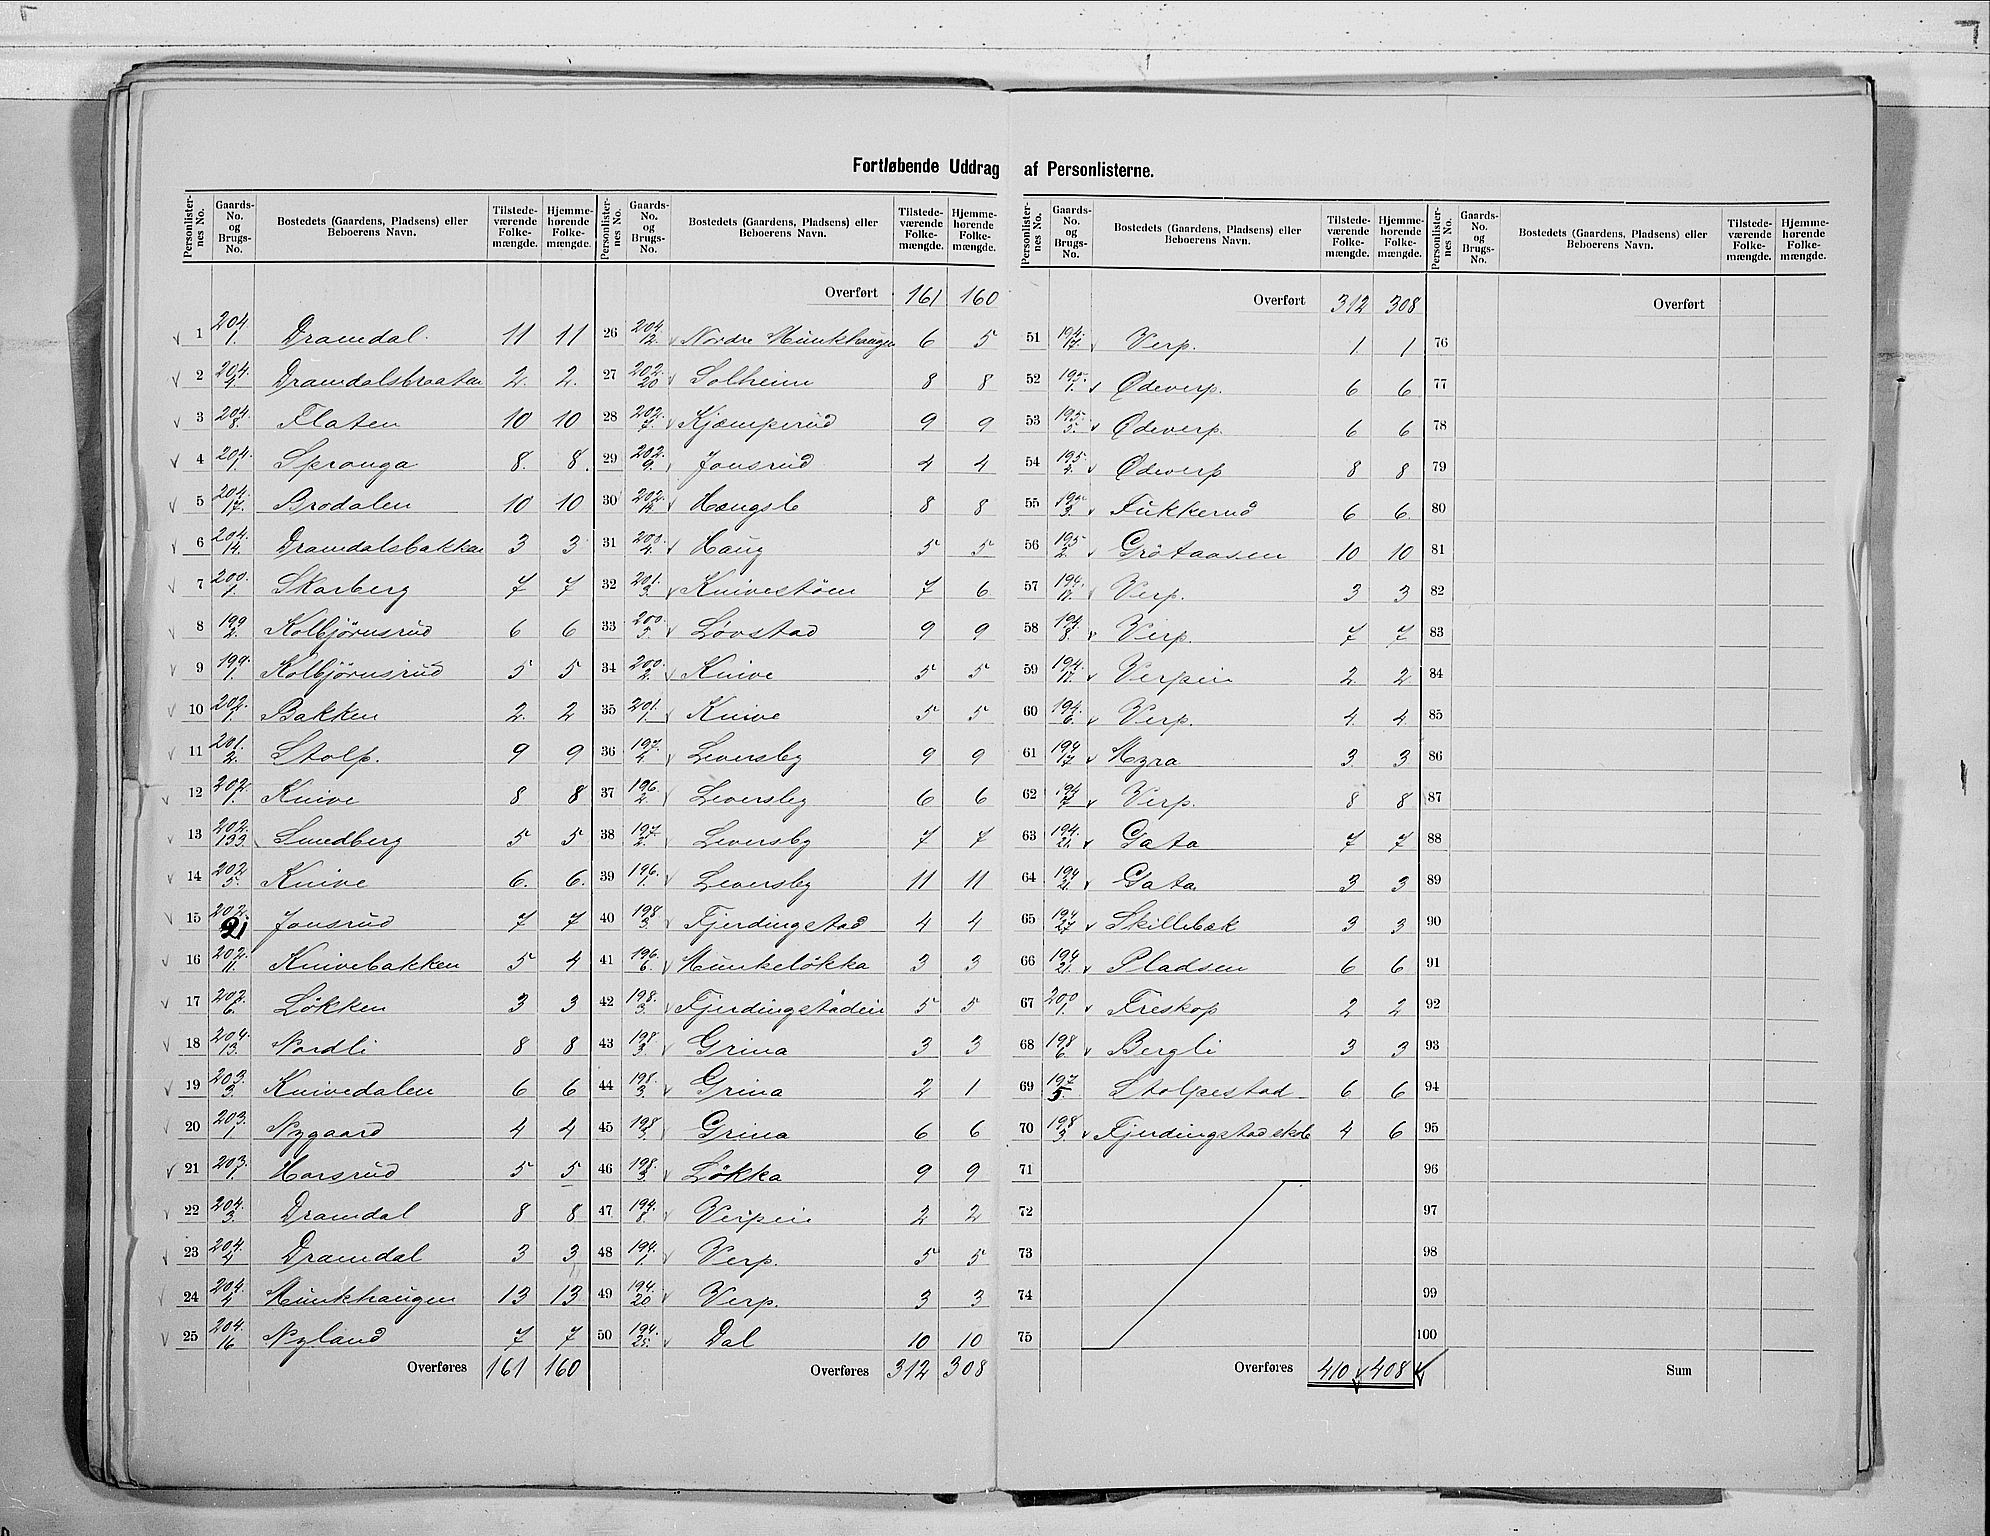 Fortløbende Uddrag af Personlisterne.
Personlisternes No. Gaards-No. og Brugs-No. Bostedets (Gaardens, Pladsens) eller Beboerens Navn. Tilstedeværende Folkemængde. Hjemmehørende Folkemængde.
1 204/1. Dramdal. 11 11
2 204./2. Dramdalsbraaten 2. 2.
3 204./8. Flaten 10 10
4 204./1. Spronga 8. 8.
5 204./17. Brodalen 10 10
6 204./14. Dramdalsbakkan 3 3
7 200./1. Skarberg 7 7
8 199/2. Kolbjörnsrud 6 6
9 199./1. Kolbjörnsrud 5 5
10 202./1. Bakken 2. 2
11 201./2. Stolp. 9 9
12 202./1. Knive 8 8
13 202./133. Smedberg 5 5
14 202/5. Knive 6. 6.
15 202./21 Jonsrud 7 7
16 202./11. Knivebakken 5 4
17 202./6. Løkken 3 3
18 204/13. Nordli 8 8
19 203./3. Knivedalen 6 6
20 203./1 Nygaard 4 4
21 203./1. Horsrud 5 5
22 204./3. Dramdal 8 8
23 204./4 Dramdal 3 3
24 204./4 Munkhaugen 13 13
25 204./16 Nyland 7 7
Overføres 161 160
Personlisternes No. Gaards-No. og Brugs-No. Bostedets (Gaardens, Pladsens) eller Beboerens Navn. Tilstedeværende Folkemængde. Hjemmehørende Folkemængde.
Overført 161 160
26 204./12. Nordre Munkhaugen 6 5
27 202./20 Solheim 8 8
28 202./7. Kjæmperud 9 9
29 202./9. Jonsrud 4 4
30 202./12. Hængslo 8 8
31 200./4. Haug 5 5
32 201./3. Knivestöen 7 6
33 200./3. Lövstad 9 9.
34 200./2. Knive 5 5
35 201./1. Knive 5 5
36 197./4. Leversby 9 9
37 196./2. Leversby 6 6
38 197./2. Leversby 7 7
39 196./1. Leversby 11 11
40 198/3. Fjerdingstad 4 4
41 196./6. Munkeløkka 3 3
42 198./3. Fjerdingstadeie 5 5
43 198/3. Grina 3 3
44 198./3. Grina 2 1
45 198/3. Grina 6 6
46 198./3. Løkka 9 9
47 194./8. Verpeie 2 2
48 194./1. Verp. 5 5
49 194./20 Verp. 3 3
50 194./25. Dal 10 10
Overføres 312 308
Personlisternes No. Gaards-No. og Brugs-No. Bostedets (Gaardens, Pladsens) eller Beboerens Navn. Tilstedeværende Folkemængde. Hjemmehørende Folkemængde.
Overført 312 308
51 194./17. Verp. 1. 1
52 195./1. Ødeverp. 6 6
53 195./5. Ødeverp. 6 6
54 195./4. Ødeverp 8 8
55 195/3. Fukkerud 6 6.
56 195/2. Grötaasen 10 10
57 194./12. Verp. 3 3
58 194/8. Verp. 7 7
59 194./17. Verpeie 2 2
60 194./6. Verp. 4 4
61 194/17 Myra 3 3
62 194/7 Verp. 8 8
63 194./21. Gata 7 7
64 194/21. Gata 3 3
65 194/27 Skillebæk 3 3
66 194/21. Pladsen 6 6
67 200/1. Freskop 2 2
68 198/6. Bergli 3 3
69 197/5. Stolpestad 6 6
70 198/3. Fjerdingstad skole 4 6
71
72
73
74
75
Overføres 410 408
Personlisternes No. Gaards-No. og Brugs-No. Bostedets (Gaardens, Pladsens) eller Beboerens Navn. Tilstedeværende Folkemængde. Hjemmehørende Folkemængde.
Overført
76
77
78
79
80
81
82
83
84
85
86
87
88
89
90
91
92
93
94
95
96
97
98
99
100
Sum